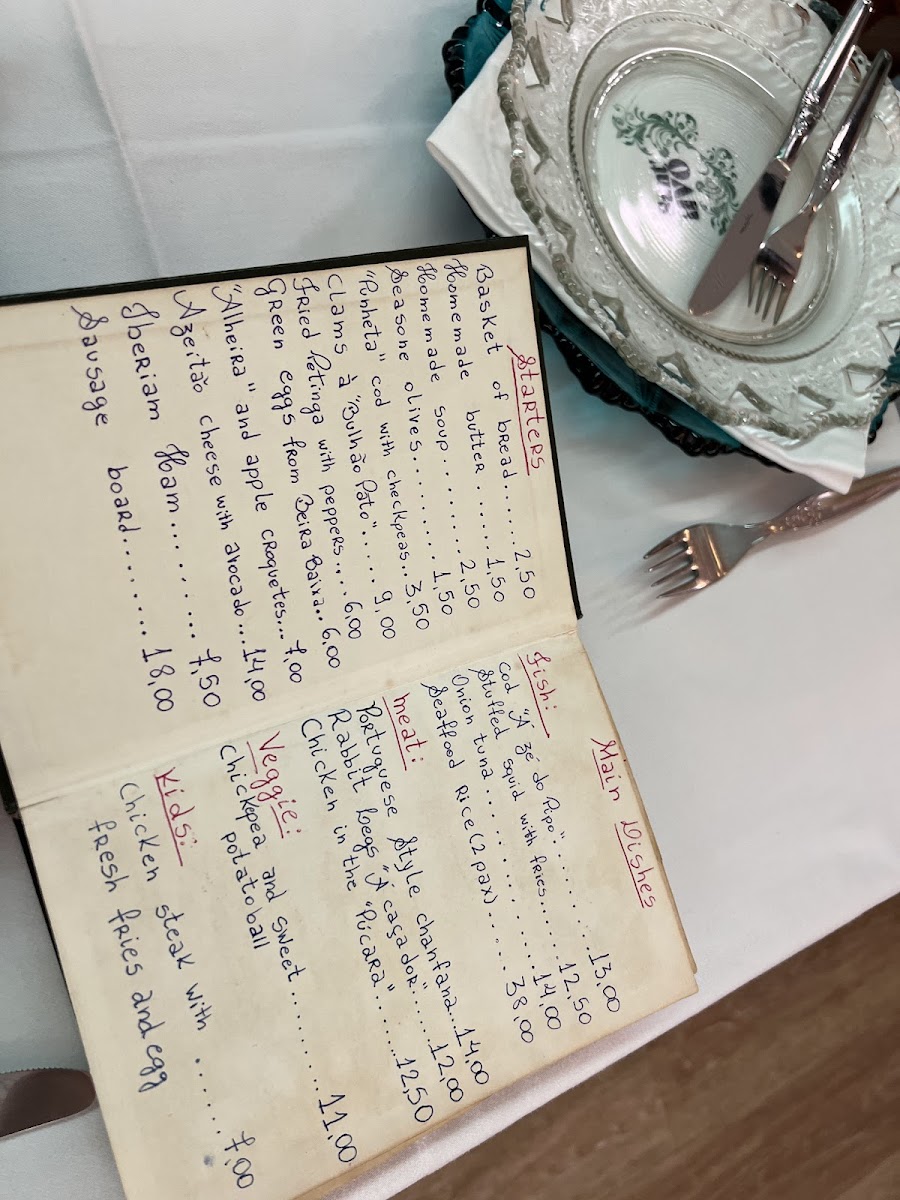 Starters
Basket of bread...... 2,50
Homemade butter...... 1,50
Homemade soup......... 2,50
Seasone olives......... 1,50
"Punheta" cod with checkpeas.. 3,50
Clams à "Bulhão Pato"..... 9,00
Fried Petinga with peppers.... 6,00
Green eggs from Beira Baixa.. 6,00
"Alheira" and apple croquetes... 7,00
Azeitão cheese with avocado... 14,00
Iberiam Ham.......... 7,50
Sausage board......... 18,00
Main Dishes
Fish:
Cod "À Zé do Pipo"......... 13,00
Stuffed squid with fries...... 12,50
Onion tuna................ 14,00
Seaffood Rice (2 pax)...... 38,00
Meat:
Portuguese style chanfana... 14,00
Rabbit Legs "À caçador"..... 12,00
Chicken in the "Púcara"...... 12,50
Veggie:
Chickepea and sweet......... 11,00
potatoball
Kids:
Chicken steak with........ 7,00
fresh fries and egg